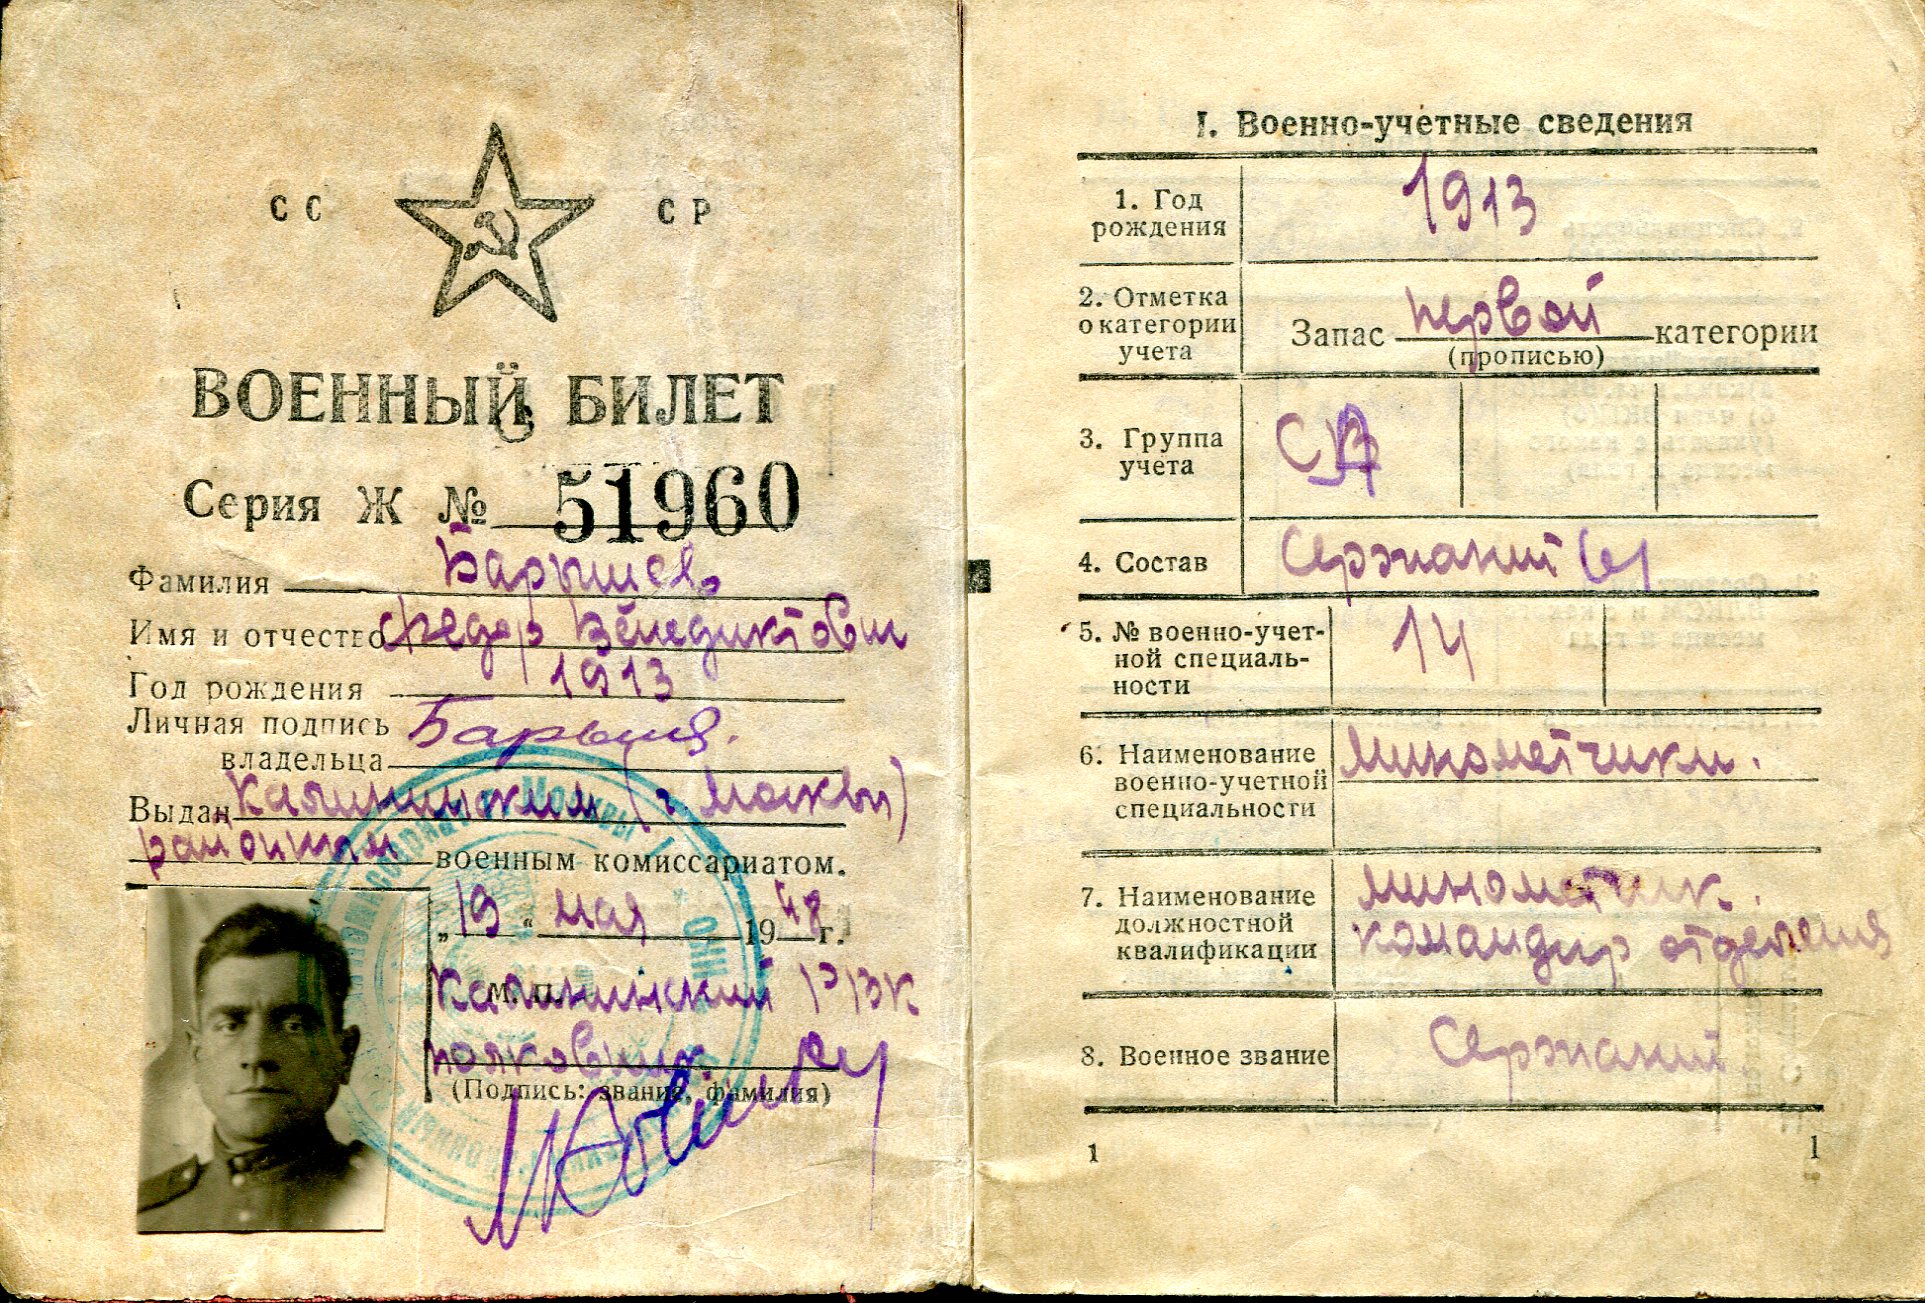 СС СР
ВОЕННЫЙ БИЛЕТ
Серия Ж № 51960
Фамилия Барышев
Имя и отчество Федор Венедиктович
Год рождения 1913
Личная подпись
владельца
Выдан Калининским (г. Москвы)
районным военным комиссариатом.
„19“ мая 1948 г.
М. П.
Калининский РВК
полковник
(Подпись: звание, фамилия)
I. Военно-учетные сведения
1. Год
рождения
1913
2. Отметка
о категории
учета
Запас первой категории
(прописью)
3. Группа
учета
4. Состав
Сержантский
5. № военно-учет-
ной специаль-
ности
14
6. Наименование
военно-учетной
специальности
Минометчики.
7. Наименование
должностной
квалификации
Минометчик.
командир отделения
8. Военное звание
Сержант
1
1